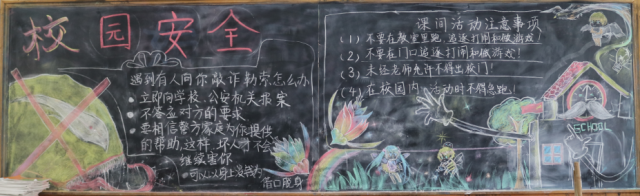 校园安全
遇到有人向你敲诈勒索怎么办
• 立即向学校、公安机关报案
• 不答应对方的要求
• 要相信警方家庭为你提供
的帮助,这样,坏人才不会
继续害你
• 可以以身上没钱为
借口脱身
课间活动注意事项
(1)不要在教室里跑、追逐打闹和做游戏!
(2)不要在门口追逐打闹和做游戏!
(3)未经老师允许不得出校门!
(4)在校园内活动时不得急跑!
SCHOOL